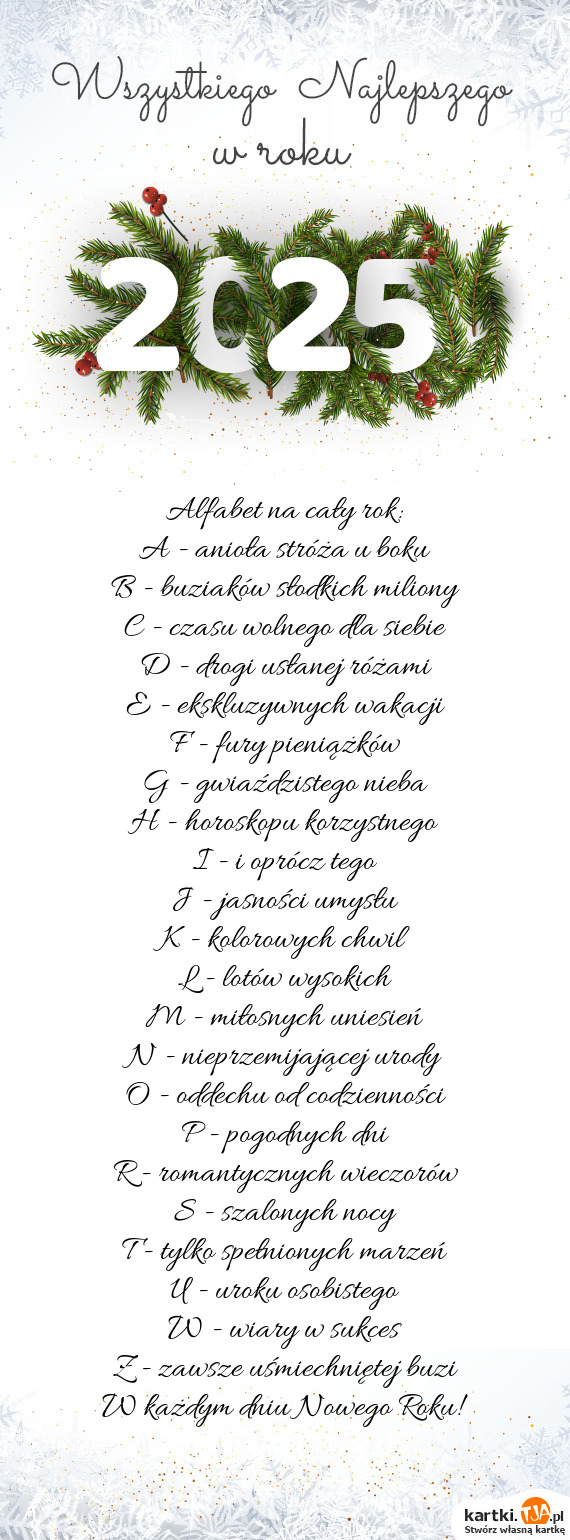 Wszystkiego Najlepszego
w roku
2025
Alfabet na cały rok:
A - anioła stróża u boku
B - buziaków słodkich miliony
C - czasu wolnego dla siebie
D - drogi usłanej różami
E - ekskluzywnych wakacji
F - fury pieniążków
G - gwiaździstego nieba
H - horoskopu korzystnego
I - i oprócz tego
J - jasności umysłu
K - kolorowych chwil
L - lotów wysokich
M - miłosnych uniesień
N - nieprzemijającej urody
O - oddechu od codzienności
P - pogodnych dni
R - romantycznych wieczorów
S - szalonych nocy
T - tylko spełnionych marzeń
U - uroku osobistego
W - wiary w sukces
Z - zawsze uśmiechniętej buzi
W każdym dniu Nowego Roku!
kartki.TJA.pl
Stwórz własną kartkę